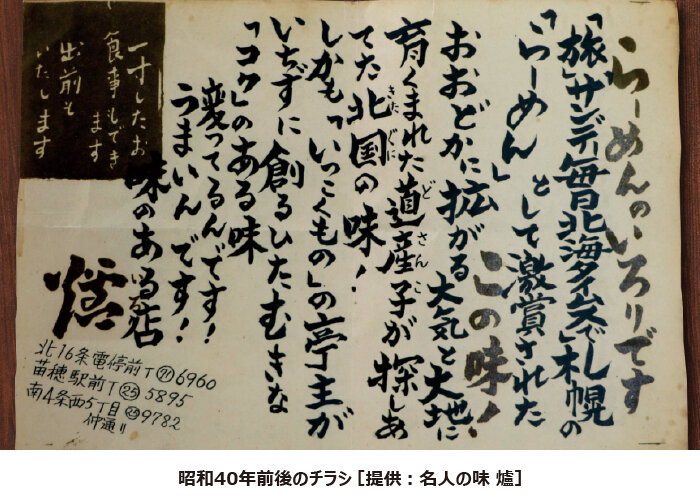 らーめんのいろりです
「旅」サンデー毎日北海タイムスで札幌の
「らーめん」として激賞された
この味!
おおどかに拡がる大気と大地に
育くまれた道産子が探しあ
どさんこ
てた北国の味!
きたぐに
しかも「いっこくもの」の亭主が
いちずに創るひたむきな
「コク」のある味
変ってるんです!
うまいんです!
味のある店
爐
一寸したお
食事もでき
ます
出前も
いたします
北16条電停前T(71)6960
苗穂駅前T(25)5895
南4条西5丁目(23)9782
仲通り
昭和40年前後のチラシ［提供：名人の味 爐］